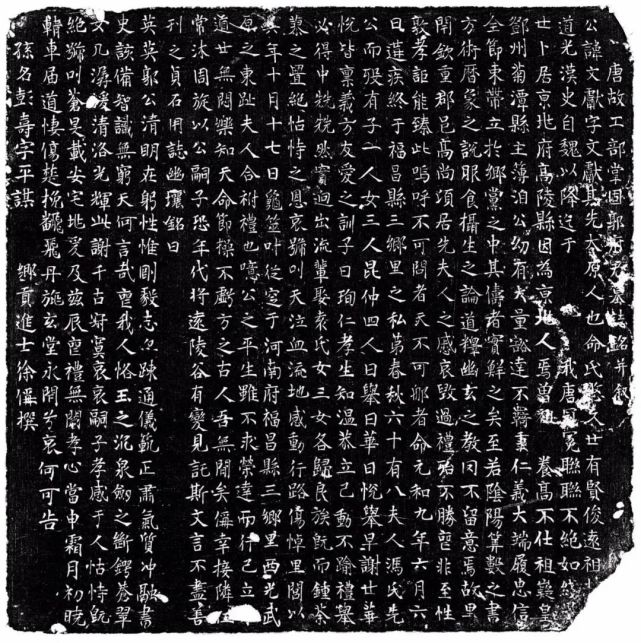 唐故工部掌固郭府君墓誌銘并敘
公諱文獻字文獻其先太原人也命氏 久世有賢俊遠祖
道光漢史自魏以降迄于 唐 冕聯聯不絕如
世卜居京兆府高陵縣因為京兆人焉曾祖 養高不仕祖嶷皇
鄧州菊潭縣主薄洎公幼有大量豁達不羇秉仁義大端履忠信
全節束帶立於鄉黨之中其儔者實鮮之矣至若陰陽筭數之書
方術曆象之說服食攝生之論道釋幽玄之教罔不留意焉故里
閈欽重郡邑高尚頃居先夫人之感哀毀過禮殆不勝喪非至性
敦孝詎能臻此嗚呼不可問者天不可耶者命元和九年六月六
日遘疾終于福昌縣三鄉里之私第春秋六十有八夫人馮氏先
公而殁有子二人女三人昆仲四人曰轝曰華曰悅轝早謝世華
悅皆稟義方友愛之訓子曰珣仁孝生知溫恭立己動不隳禮舉
必得中兟兟然實迥出流輩娶袁氏女三女各歸良族旣而鍾荼
蓼之舋絕怙恃之恩哀號叫天泣血流地感動行路傷悼里閭以
其年十月十七日龜筮叶從窆于河南府福昌縣三鄉里西光武
原之東趾夫人合祔禮也噫公之平生雖不求榮達而行己立
道世無悶樂知天命節操不虧方之古人吾無間矣偁幸接隣
常沐周旋以公嗣子恐年代將遠陵谷有變見託斯文言不盡善
刊之貞石用誌幽壤銘曰
英英郭公清明在躬性惟剛毅志 踈通儀範正肅氣質冲融書
史該備智識無窮天何言哉喪我人 玉之沉泉劍之斷鍔蒼翠
女几潺湲清洛光輝此謝千古 寞哀哀嗣子孝感于人怙恃旣
絕號叫蒼旻戴安宅兆爰及茲辰喪禮無闕孝心當申霜月初曉
輤車届道悽傷楚挽飜飛丹旐玄堂永閇兮哀何可告
孫名彭壽字平謀 鄉貢進士徐偁撰